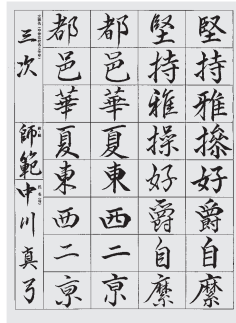 堅持雅操好爵自縻
堅持雅操好爵自縻
都邑華夏東西二亰
都邑華夏東西二亰
三次 師範 中川真弓